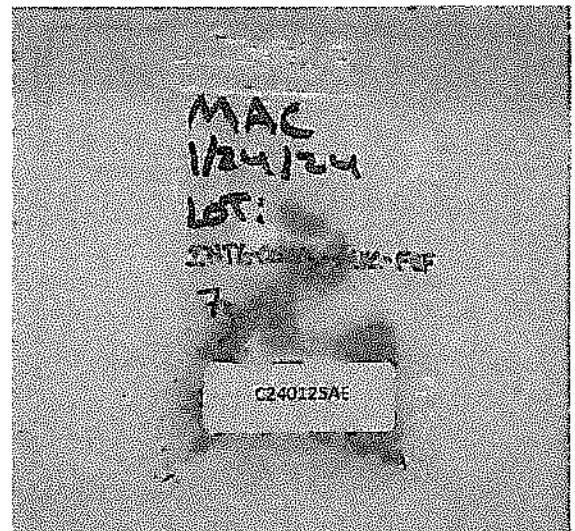 MAC
1/24/24
LOT:
7.
C240125AE